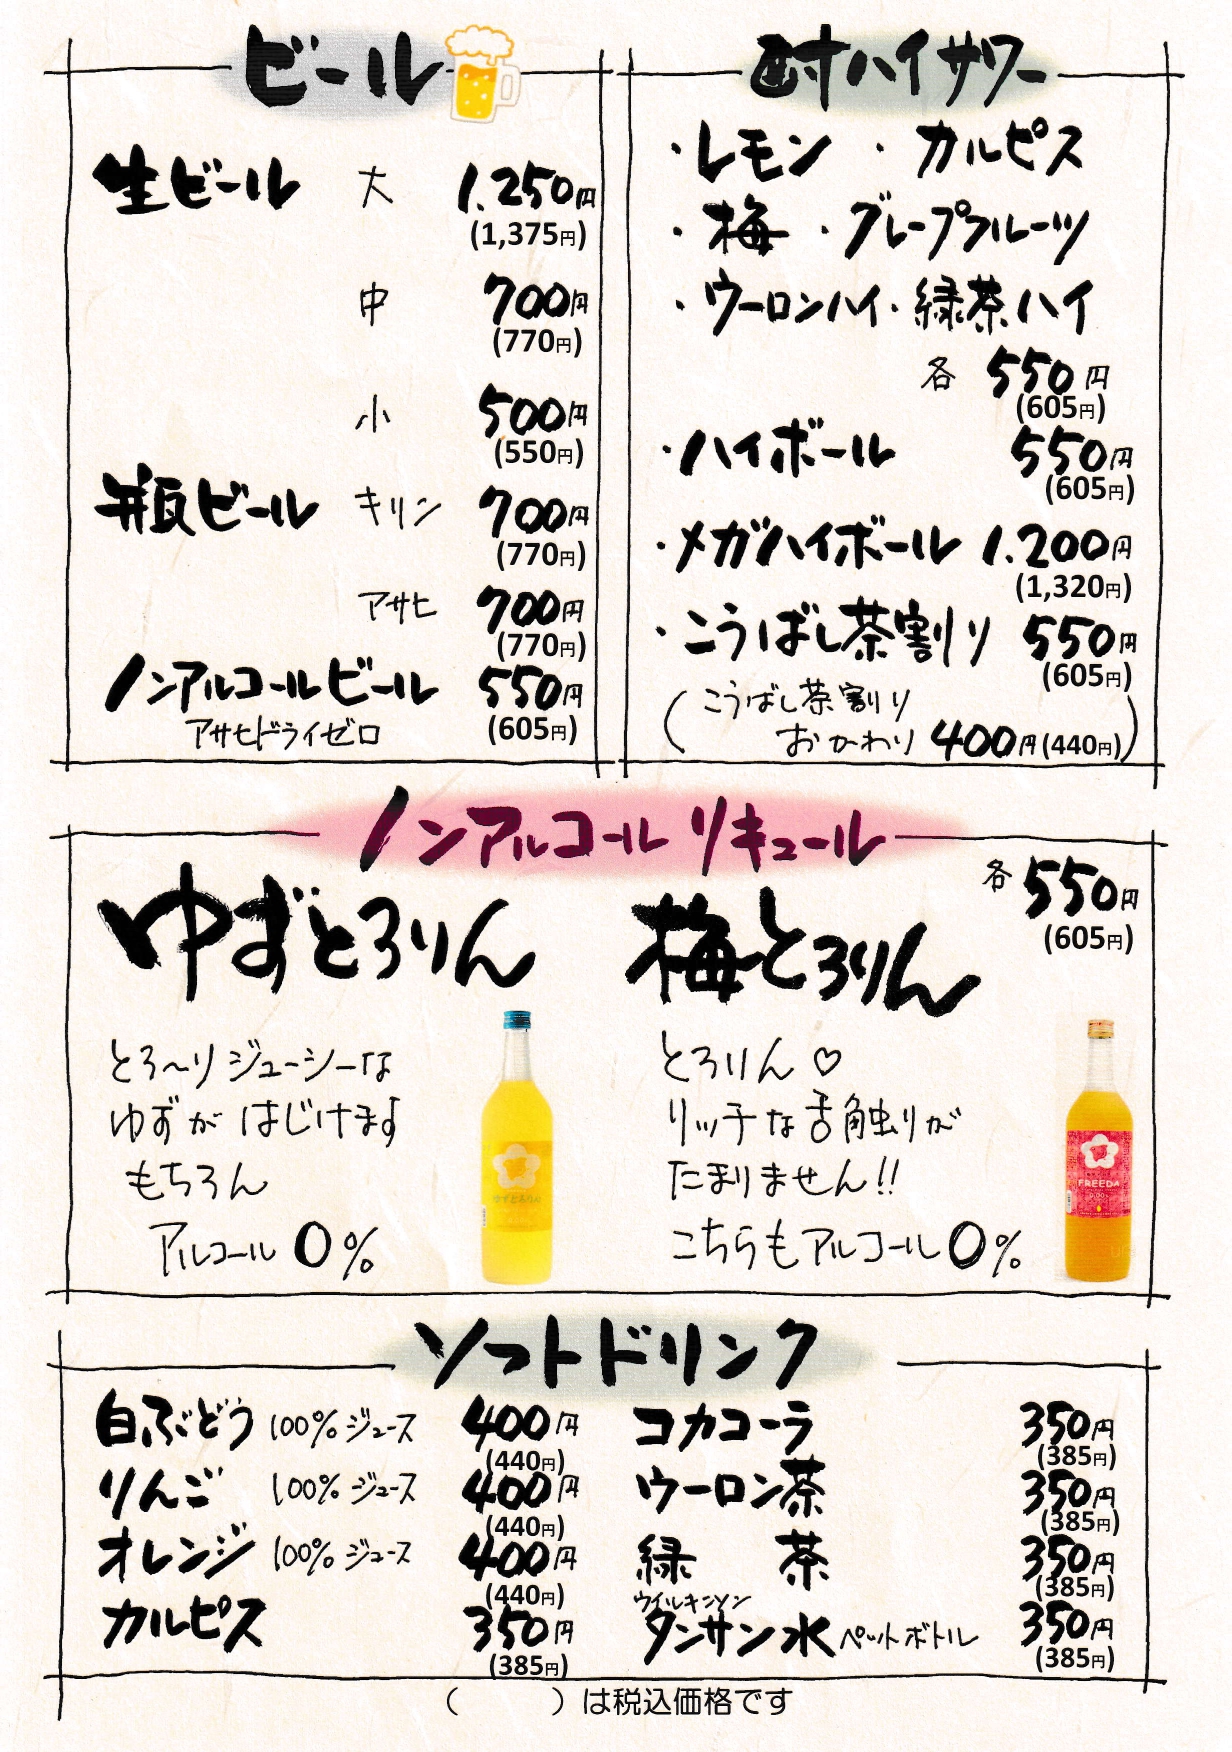 ビール
生ビール 大 1.250円
(1,375円)
中 700円
(770円)
小 500円
(550円)
瓶ビール キリン 700円
(770円)
アサヒ 700円
(770円)
ノンアルコールビール 550円
アサヒドライゼロ (605円)
酎ハイサワー
・レモン ・カルピス
・梅 ・グレープフルーツ
・ウーロンハイ・緑茶ハイ
各 550円
(605円)
・ハイボール 550円
(605円)
・メガハイボール 1.200円
(1,320円)
・こうばし茶割り 550円
(605円)
(こうばし茶割り
おかわり 400円(440円))
ノンアルコールリキュール
各550円
(605円)
ゆずとろりん
とろ〜りジューシーな
ゆずがはじけます
もちろん
アルコール0%
ゆずとろりん
梅とろりん
とろりん♡
リッチな舌触りが
たまりません!!
こちらもアルコール0%
FREEDA
0.00%
ソフトドリンク
白ぶどう 100%ジュース 400円
(440円)
りんご 100%ジュース 400円
(440円)
オレンジ 100%ジュース 400円
(440円)
カルピス 350円
(385円)
コカコーラ 350円
(385円)
ウーロン茶 350円
(385円)
緑 茶 350円
(385円)
ウイルキンソン
タンサン水 ペットボトル 350円
(385円)
( )は税込価格です